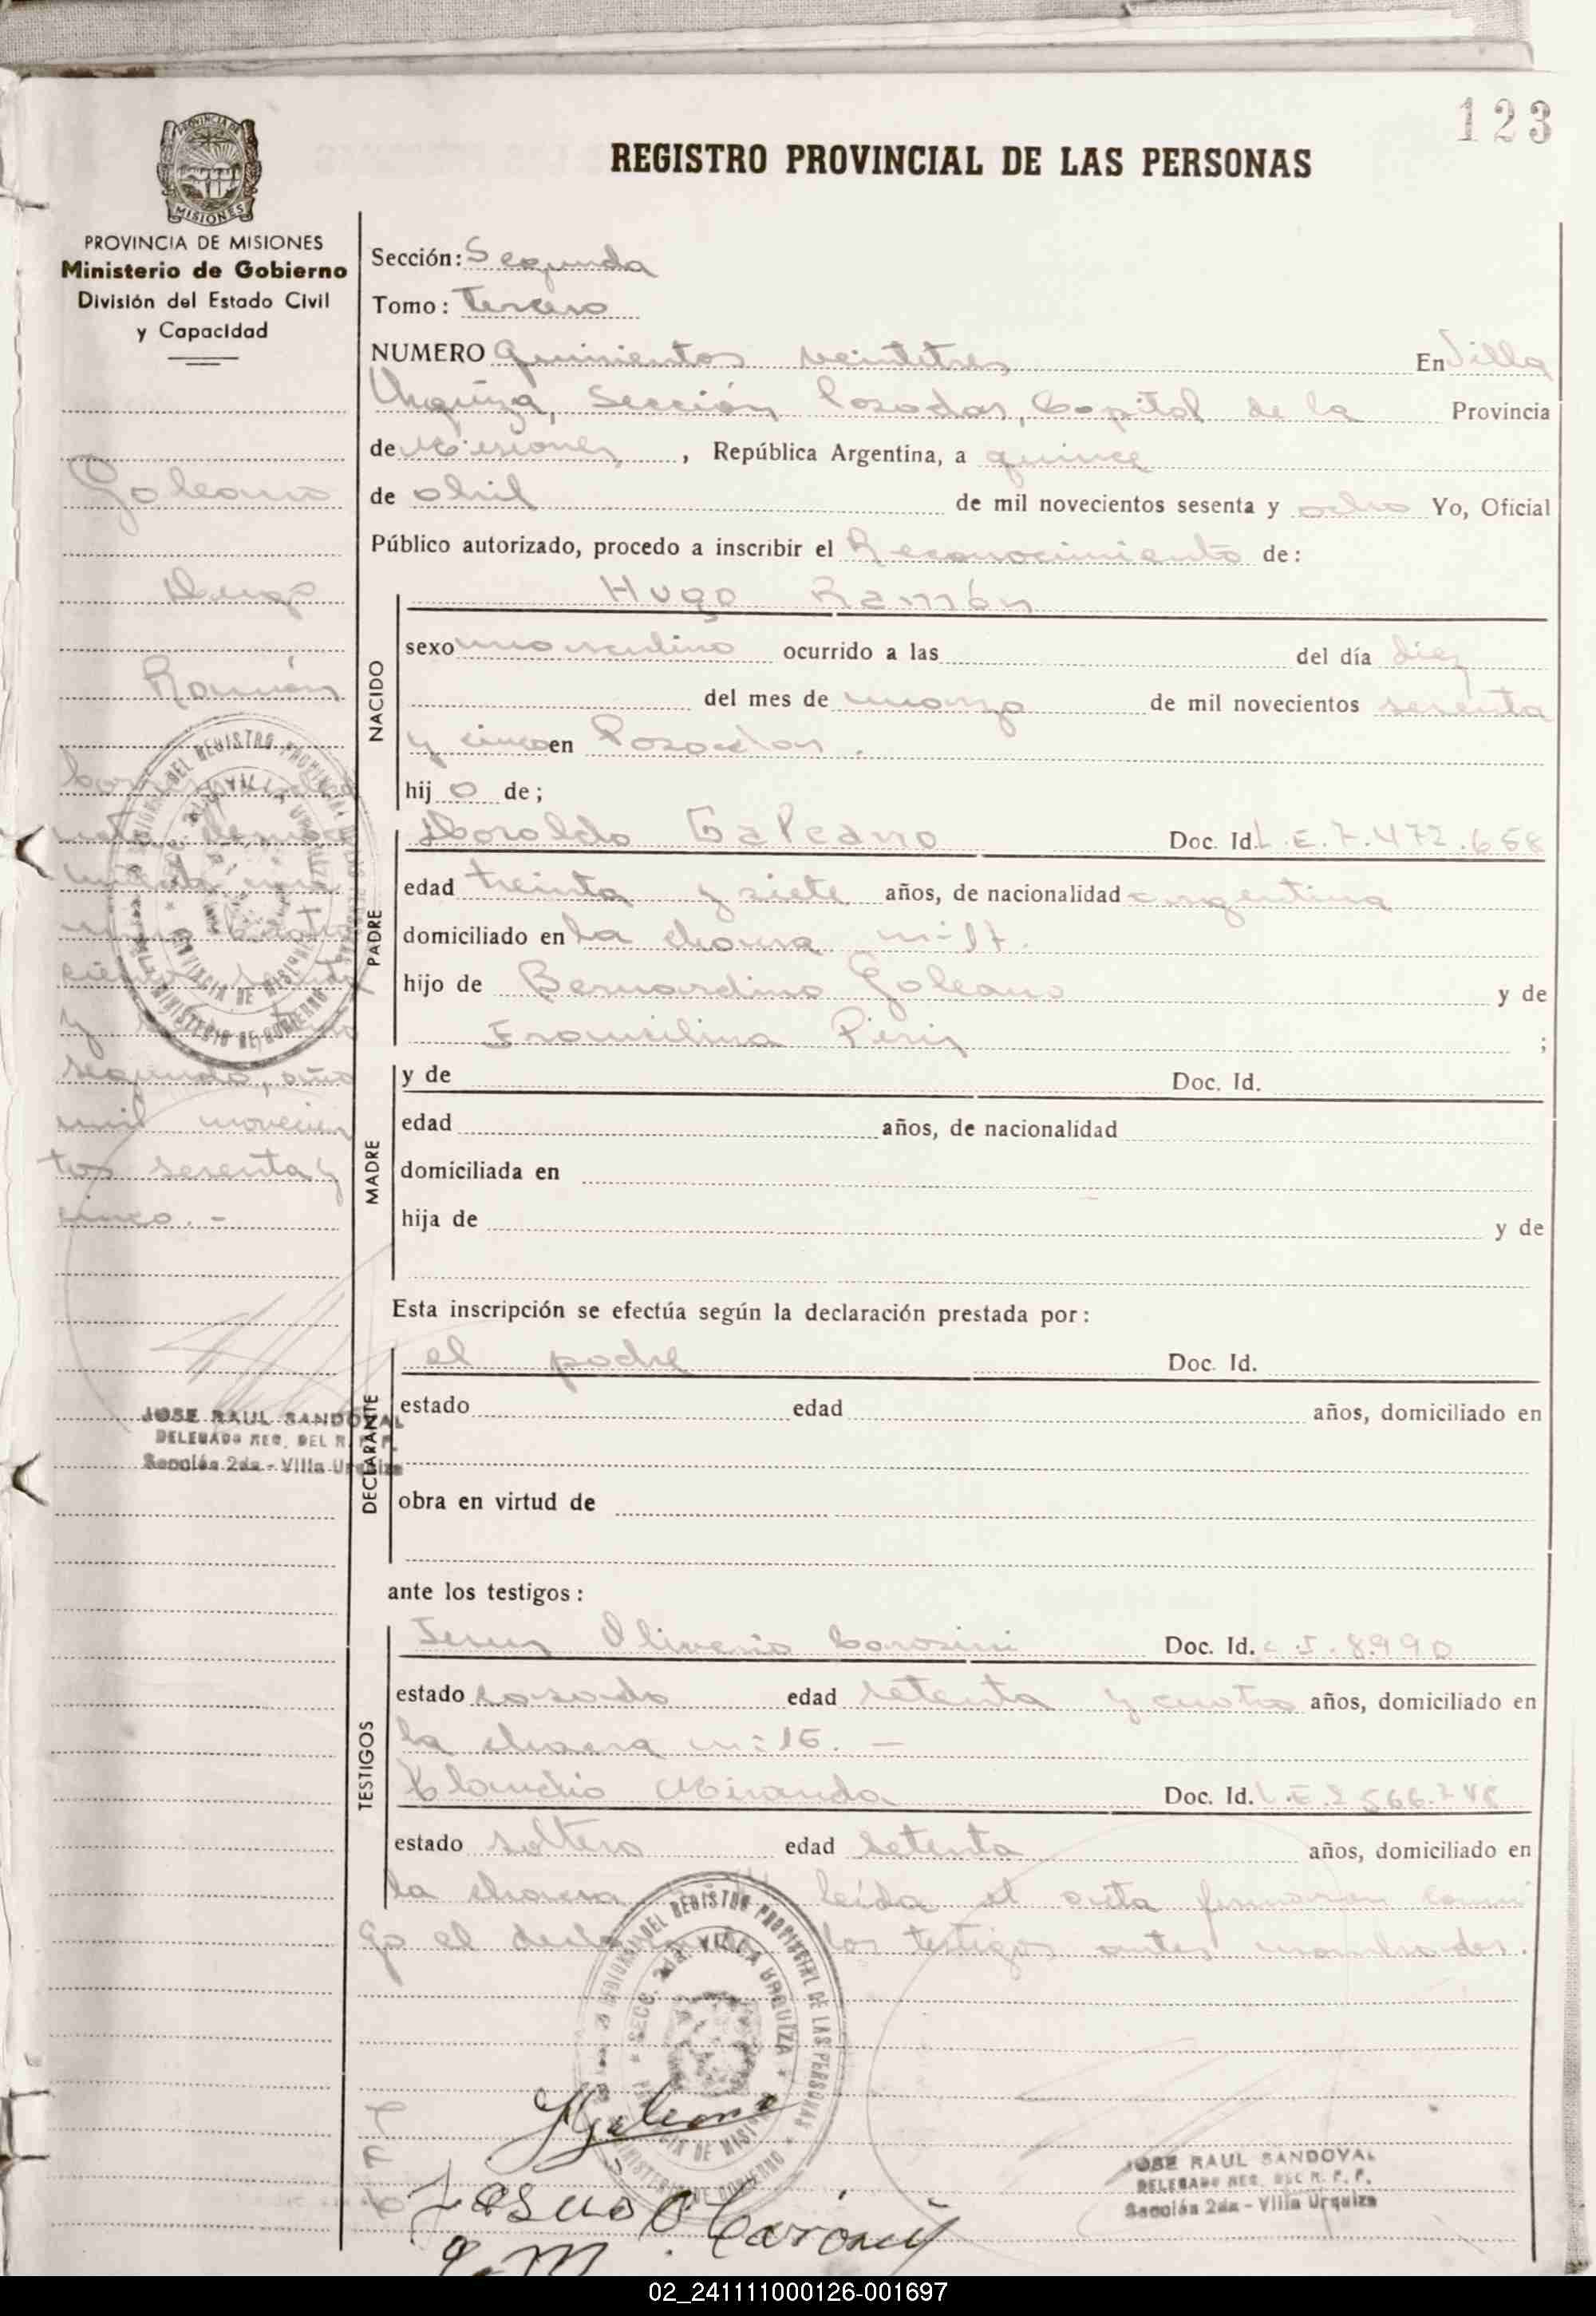 123
REGISTRO PROVINCIAL DE LAS PERSONAS
PROVINCIA DE MISIONES
Ministerio de Gobierno
División del Estado Civil
y Capacidad
Galeano
Hugo
Ramón
segundo, año
mil novecien
tos sesenta y
cinco. -
JOSE RAUL SANDOVAL
DELEGADO REG. DEL R. P. P.
Sección 2da - Villa Urquiza
Sección: Segunda
Tomo: Tercero
NUMERO Quinientos veintitres En Villa
Urquiza, Sección Posadas, Capital de la Provincia
de Misiones, República Argentina, a quince
de abril de mil novecientos sesenta y ocho Yo, Oficial
Público autorizado, procedo a inscribir el Reconocimiento de:
NACIDO
Hugo Ramón
sexo masculino ocurrido a las del día diez
del mes de marzo de mil novecientos sesenta
y cinco en Posadas.
hij o de;
PADRE
Haroldo Galeano Doc. Id. L.E. 7.472.658
edad treinta y siete años, de nacionalidad argentina
domiciliado en la chacra n- 17.
hijo de Bernardino Galeano y de
;
MADRE
y de Doc. Id.
edad años, de nacionalidad
domiciliada en
hija de y de
Esta inscripción se efectúa según la declaración prestada por:
DECLARANTE
el padre Doc. Id.
estado edad años, domiciliado en
obra en virtud de
ante los testigos:
TESTIGOS
Jesus Oliverio Doc. Id. C.I. 8990
estado casado edad setenta y cuatro años, domiciliado en
la chacra n: 16. -
Claudio Miranda Doc. Id. L.E.
estado soltero edad setenta años, domiciliado en
la chacra leída el acta firmaran conmi
go el los testigos antes nombrados.
HGaleano
JOSE RAUL SANDOVAL
DELEGADO REG. DEL R. P. P.
Sección 2da - Villa Urquiza
02_241111000126-001697